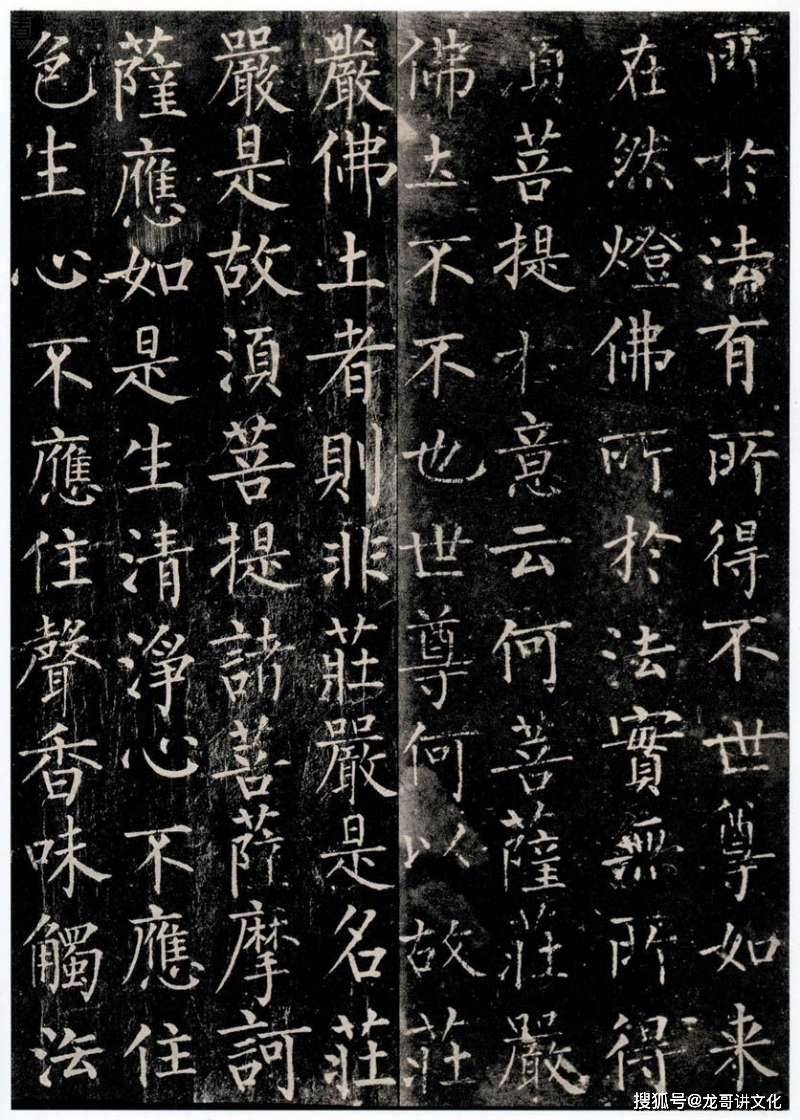 所於法有所得不世尊如来
在然燈佛所於法實無所得
須菩提於意云何菩薩莊嚴
佛土不不也世尊何以故莊
嚴佛土者則非莊嚴是名莊
嚴是故須菩提諸菩薩摩訶
薩應如是生清淨心不應住
色生心不應住聲香味觸法
搜狐号@龙哥讲文化